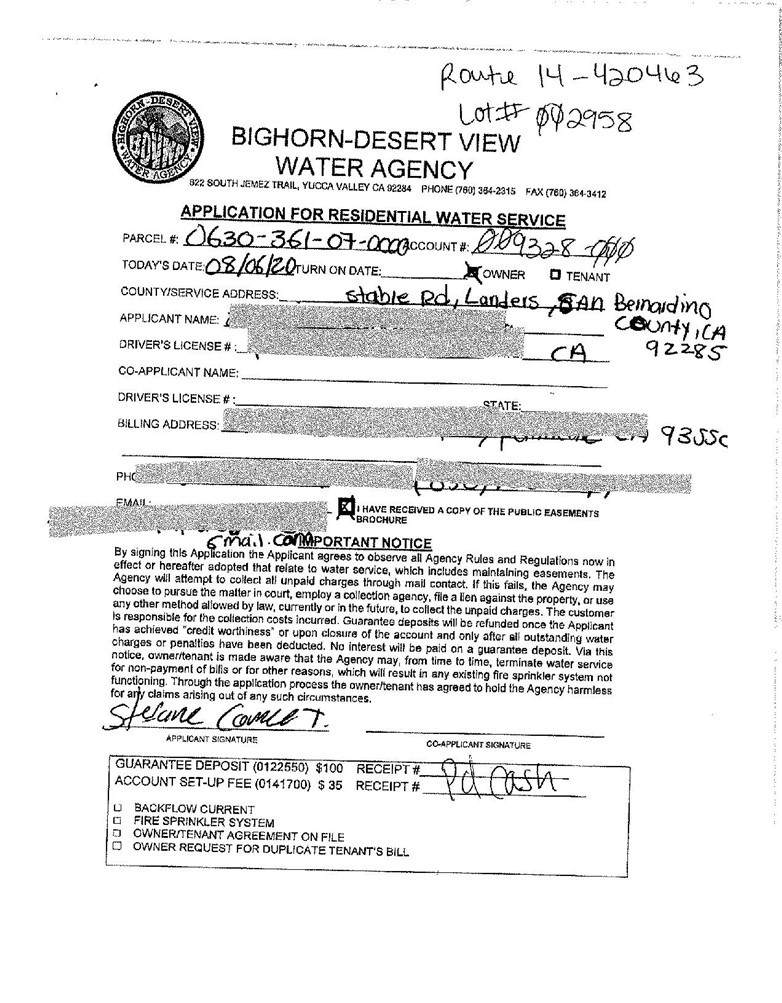 Route 14-420463
Lot# ØØ2958
BIGHORN-DESERT VIEW
WATER AGENCY
BIGHORN-DESERT VIEW
WATER AGENCY
622 SOUTH JEMEZ TRAIL, YUCCA VALLEY CA 92284 PHONE (760) 364-2315 FAX (760) 364-3412
APPLICATION FOR RESIDENTIAL WATER SERVICE
PARCEL #: 0630-361-07-0000 ACCOUNT #: ØØ9328-ØØØ
TODAY'S DATE: 08/06/20 TURN ON DATE: OWNER TENANT
COUNTY/SERVICE ADDRESS: Stable Rd, Landers, SAN Bernardino
County, CA
92285
APPLICANT NAME:
DRIVER'S LICENSE #: CA
CO-APPLICANT NAME:
DRIVER'S LICENSE #: STATE:
BILLING ADDRESS: CA 9355
PHO
EMAIL: X I HAVE RECEIVED A COPY OF THE PUBLIC EASEMENTS
BROCHURE
Gmail.com IMPORTANT NOTICE
By signing this Application the Applicant agrees to observe all Agency Rules and Regulations now in
effect or hereafter adopted that relate to water service, which includes maintaining easements. The
Agency will attempt to collect all unpaid charges through mail contact. If this fails, the Agency may
choose to pursue the matter in court, employ a collection agency, file a lien against the property, or use
any other method allowed by law, currently or in the future, to collect the unpaid charges. The customer
is responsible for the collection costs incurred. Guarantee deposits will be refunded once the Applicant
has achieved "credit worthiness" or upon closure of the account and only after all outstanding water
charges or penalties have been deducted. No interest will be paid on a guarantee deposit. Via this
notice, owner/tenant is made aware that the Agency may, from time to time, terminate water service
for non-payment of bills or for other reasons, which will result in any existing fire sprinkler system not
functioning. Through the application process the owner/tenant has agreed to hold the Agency harmless
for any claims arising out of any such circumstances.
APPLICANT SIGNATURE CO-APPLICANT SIGNATURE
GUARANTEE DEPOSIT (0122550) $100 RECEIPT # Pd Cash
ACCOUNT SET-UP FEE (0141700) $ 35 RECEIPT #
BACKFLOW CURRENT
FIRE SPRINKLER SYSTEM
OWNER/TENANT AGREEMENT ON FILE
OWNER REQUEST FOR DUPLICATE TENANT'S BILL